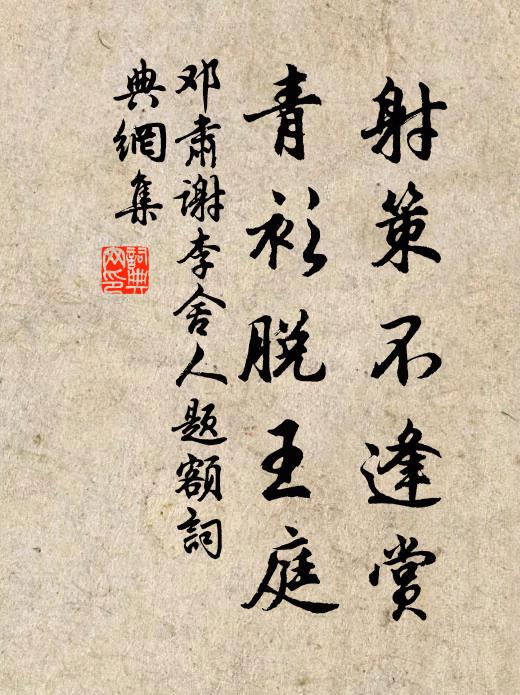 射策不逢赏
青衫脱王庭
邓肃谢李舍人题额词
典網集
詞典網印